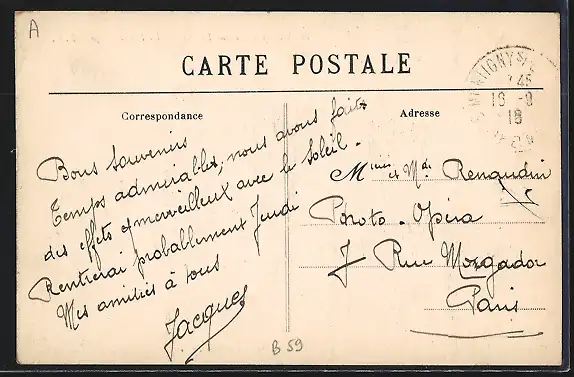 A
CARTE POSTALE
Correspondance
Bons souvenirs
Temps admirables, nous avons fait
des effets merveilleux avec le Soleil.
Rentrerai probablement Jeudi
Mes amitiés à tous
Jacques
Adresse
Renaudin
Photo-Opéra
7 Rue Mogador
Paris
16-8
18
B 59